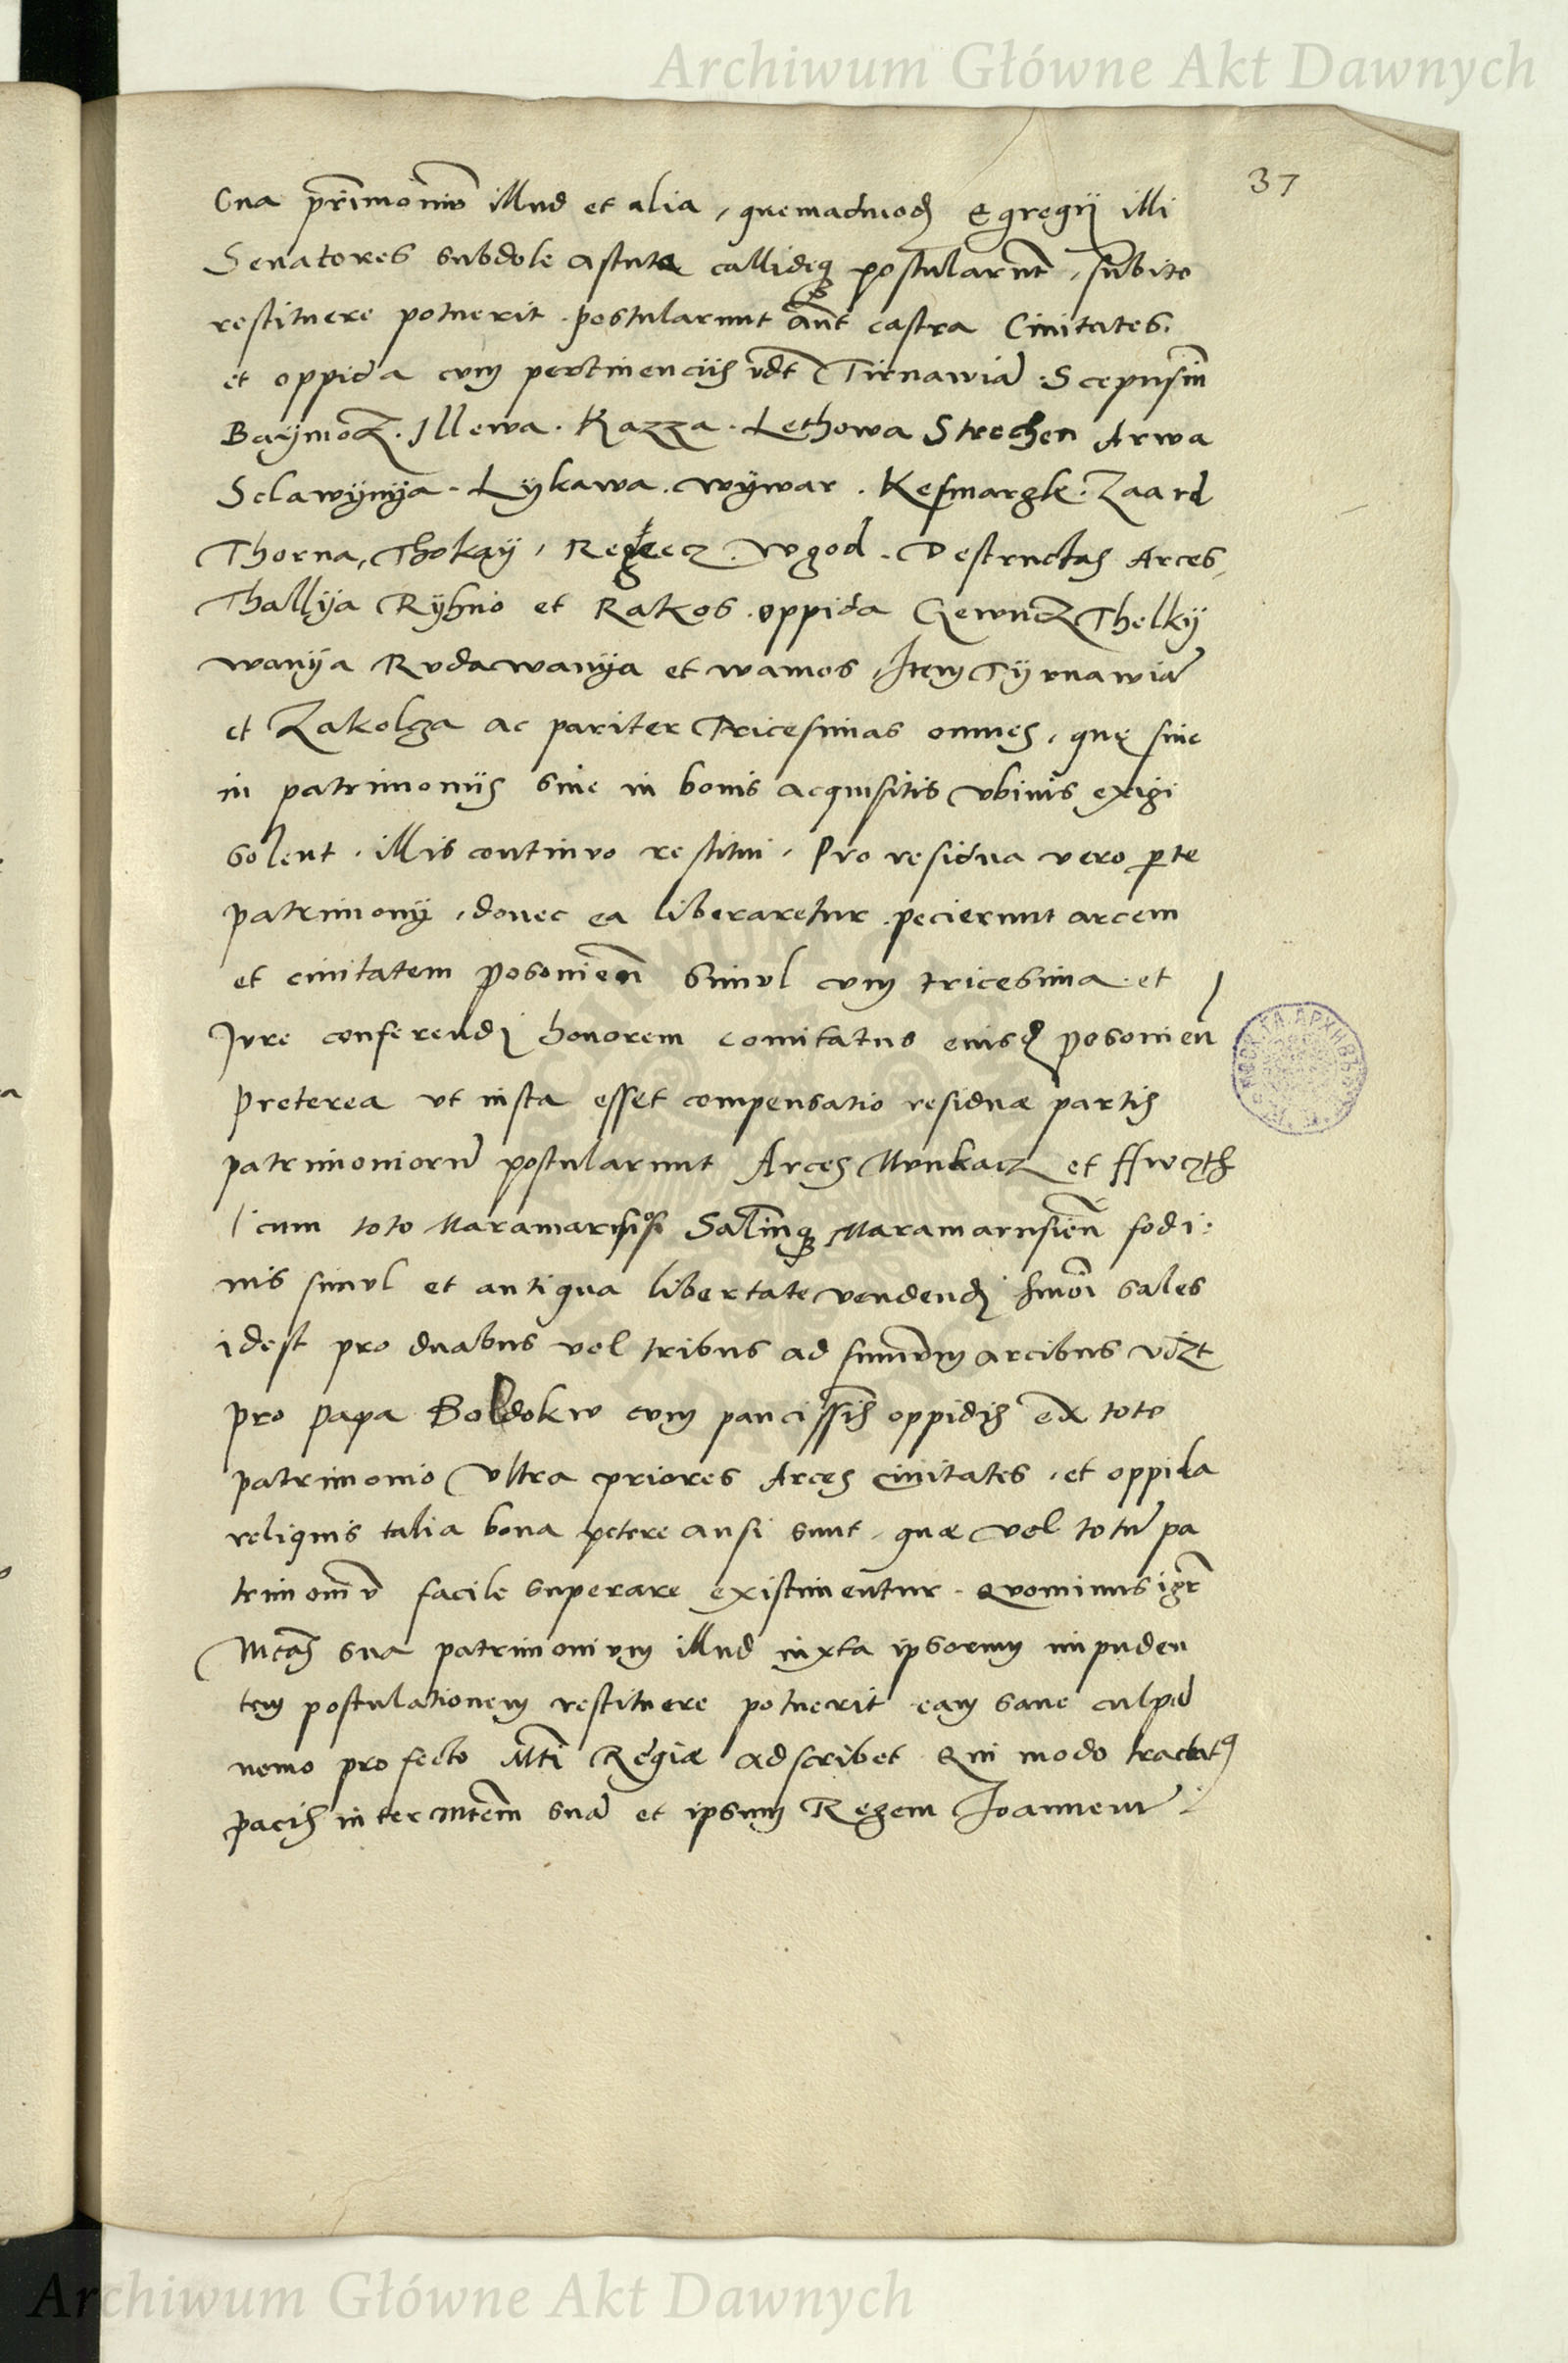 Archiwum Główne Akt Dawnych
37
Sua pr̄imoniū illud et alia, quemadmodū Egregij illi
Senatores subdole astute callideq̄ postularūt, subito
restituere potuerit. postularunt aūt castra Ciuitates.
et oppida cum pertinencijs vdt Tirnawiā. Scepusiū
Baymocz. Illewa. Kazza. Lethowa Strechen Arwa
Sclawÿnÿa. Lÿkawa. wÿwar. Kesmargk. Zaard
Thorna, Thokaÿ, Regecz. Wgod. Destructas Arces,
Thallÿa Rÿhno et Rakos. oppida Gewncz Thelkÿ
wanÿa Rudawanÿa et wamos, Item Tÿrnawiā
et Zakolza ac pariter Tricesimas omnes, quę siue
in patrimonijs siue in bonis acquisitis vbiuis exigi
solent, illis continuo restitui, Pro residua vero pte
patrimonij, donec ea liberaretur. pecierunt arcem
et ciuitatem posonien̄ simul cum tricesima. et
Jure conferendi honorem comitatus eiusd posonien̄
Preterea vt iusta esset compensatio residuæ partis
patrimoniorū postularunt Arces Munkacz et
cum toto Salinq̄ Maramarusien̄ fodi:
nis simul et antiqua libertate vendendi hmōi sales
idest pro duabus vel tribus ad summum arcibus vizt
pro papa Boldokw cum paucissis oppidis ex toto
patrimonio vltra priores Arces ciuitates, et oppida
reliquis talia bona petere ausi sunt, quæ vel totū pa
trimoniū facile superare existimentur. Quominus igr̄
Mtas sua patrimonium illud iuxta ipsorum impuden
tem postulationem restituere potuerit eam sane culpā
nemo profecto Mti Regiæ adscribet Qui modo tractatꝰ
pacis inter Mtem suā et ipsum Regem Joannem
Archiwum Główne Akt Dawnych